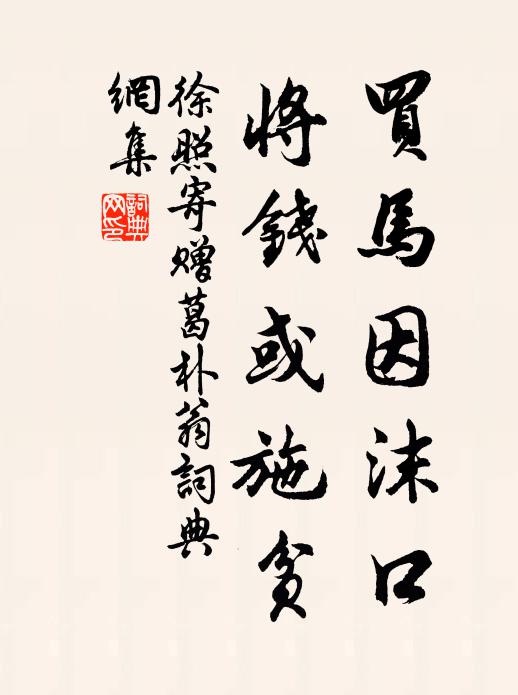 買馬因沫口
將錢或施貧
徐照寄贈葛朴翁詞典
網集
詞典
网印